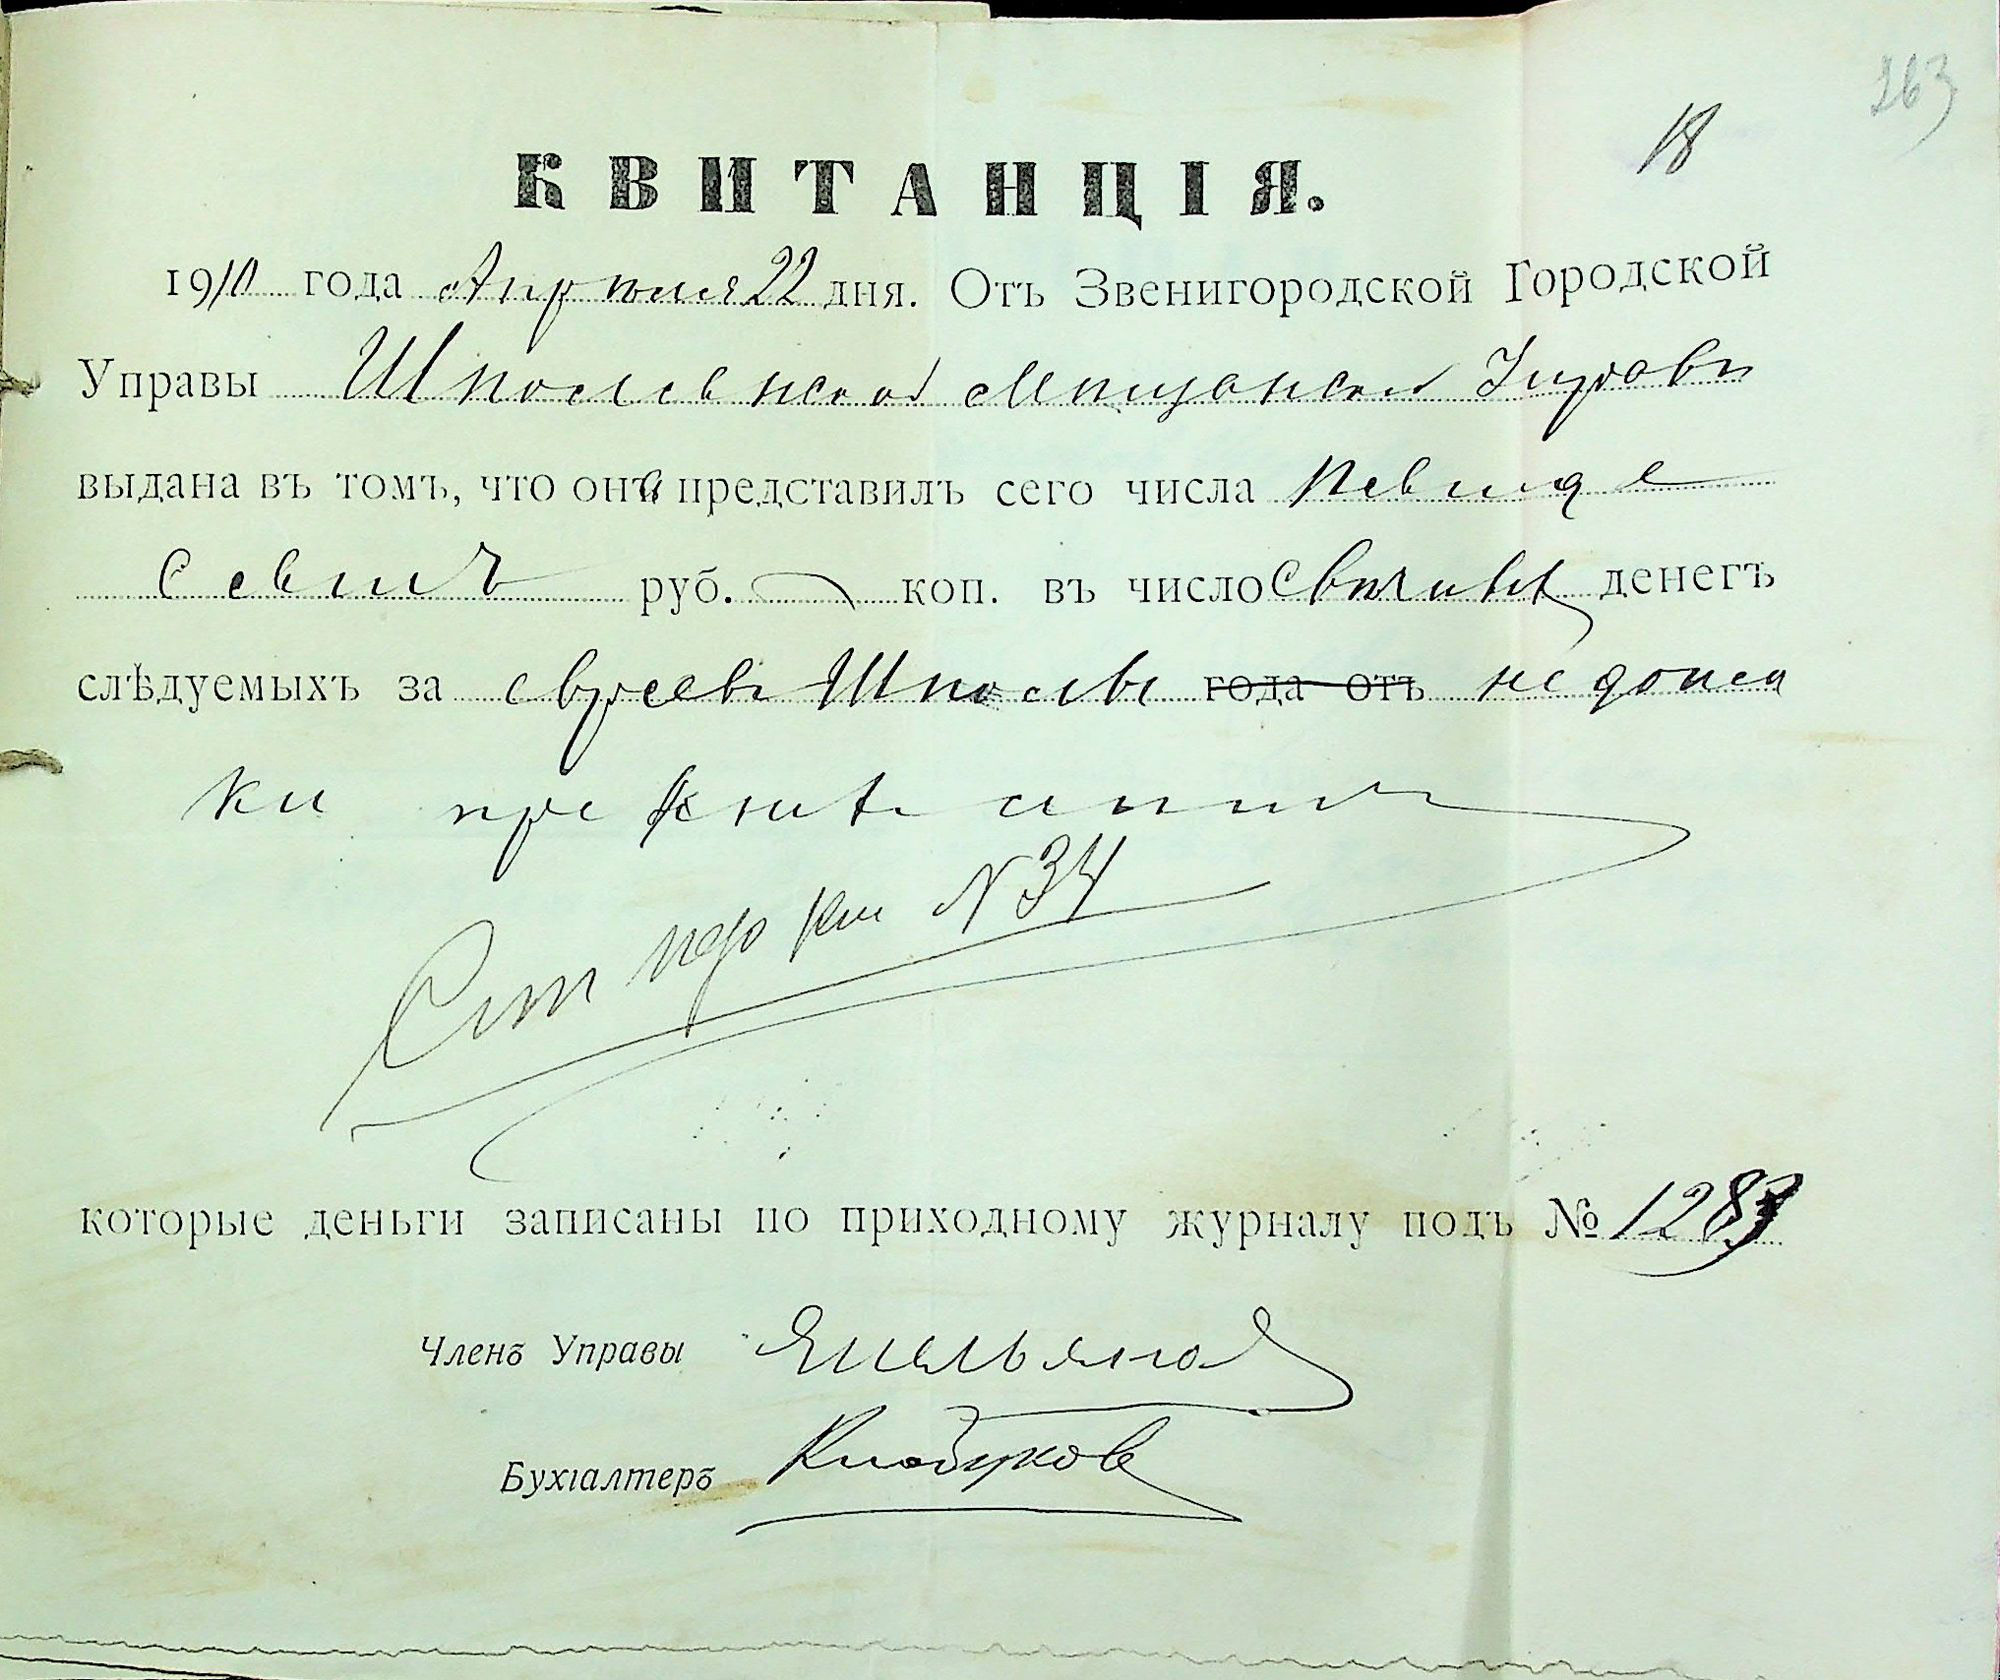 263
18
КВИТАНЦІЯ.
1910 года Апрѣля 22 дня. Отъ Звенигородской Городской
Управы Шполянской Мѣщанской Управы
выдана въ томъ, что она представилъ сего числа
семь руб. коп. въ число Свѣчныхъ денегъ
слѣдуемыхъ за евреевъ Шполы года отъ недоим
ки прежнихъ
Ст по кн №34
которые деньги записаны по приходному журналу подъ № 1289
Членъ Управы Емельянов
Бухгалтеръ Клобуков